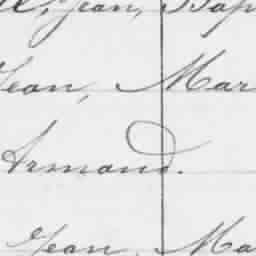 Jean, Bap
Jean, Mar
Armand.
Jean, Ma